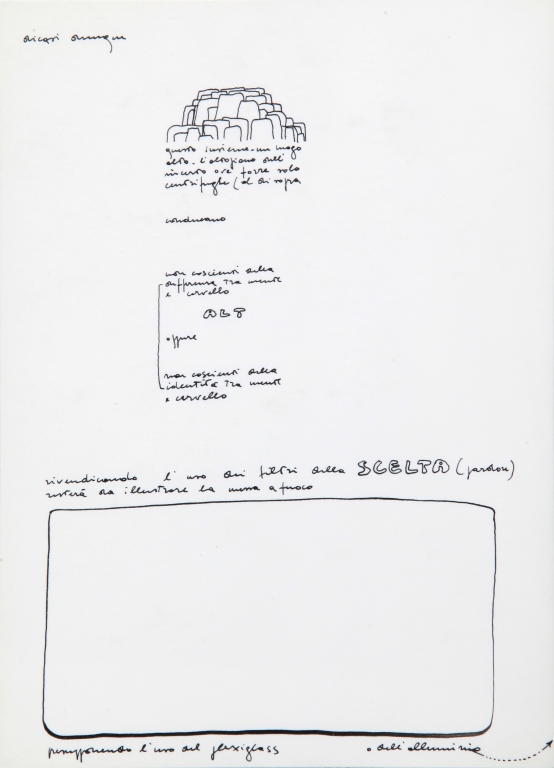 dicasi dunque
questo insieme - un luogo
alto - l'altopiano dell'
incerto ove forze solo
centrifughe (al di sopra
conducano
non coscienti della
differenza tra mente
e cervello
ALT
oppure
non coscienti della
identità tra mente
e cervello
rivendicando l'uso dei filtri della SCELTA (pardon)
resterà da illustrare la messa a fuoco
presupponendo l'uso del plexiglass
o dell'alluminio